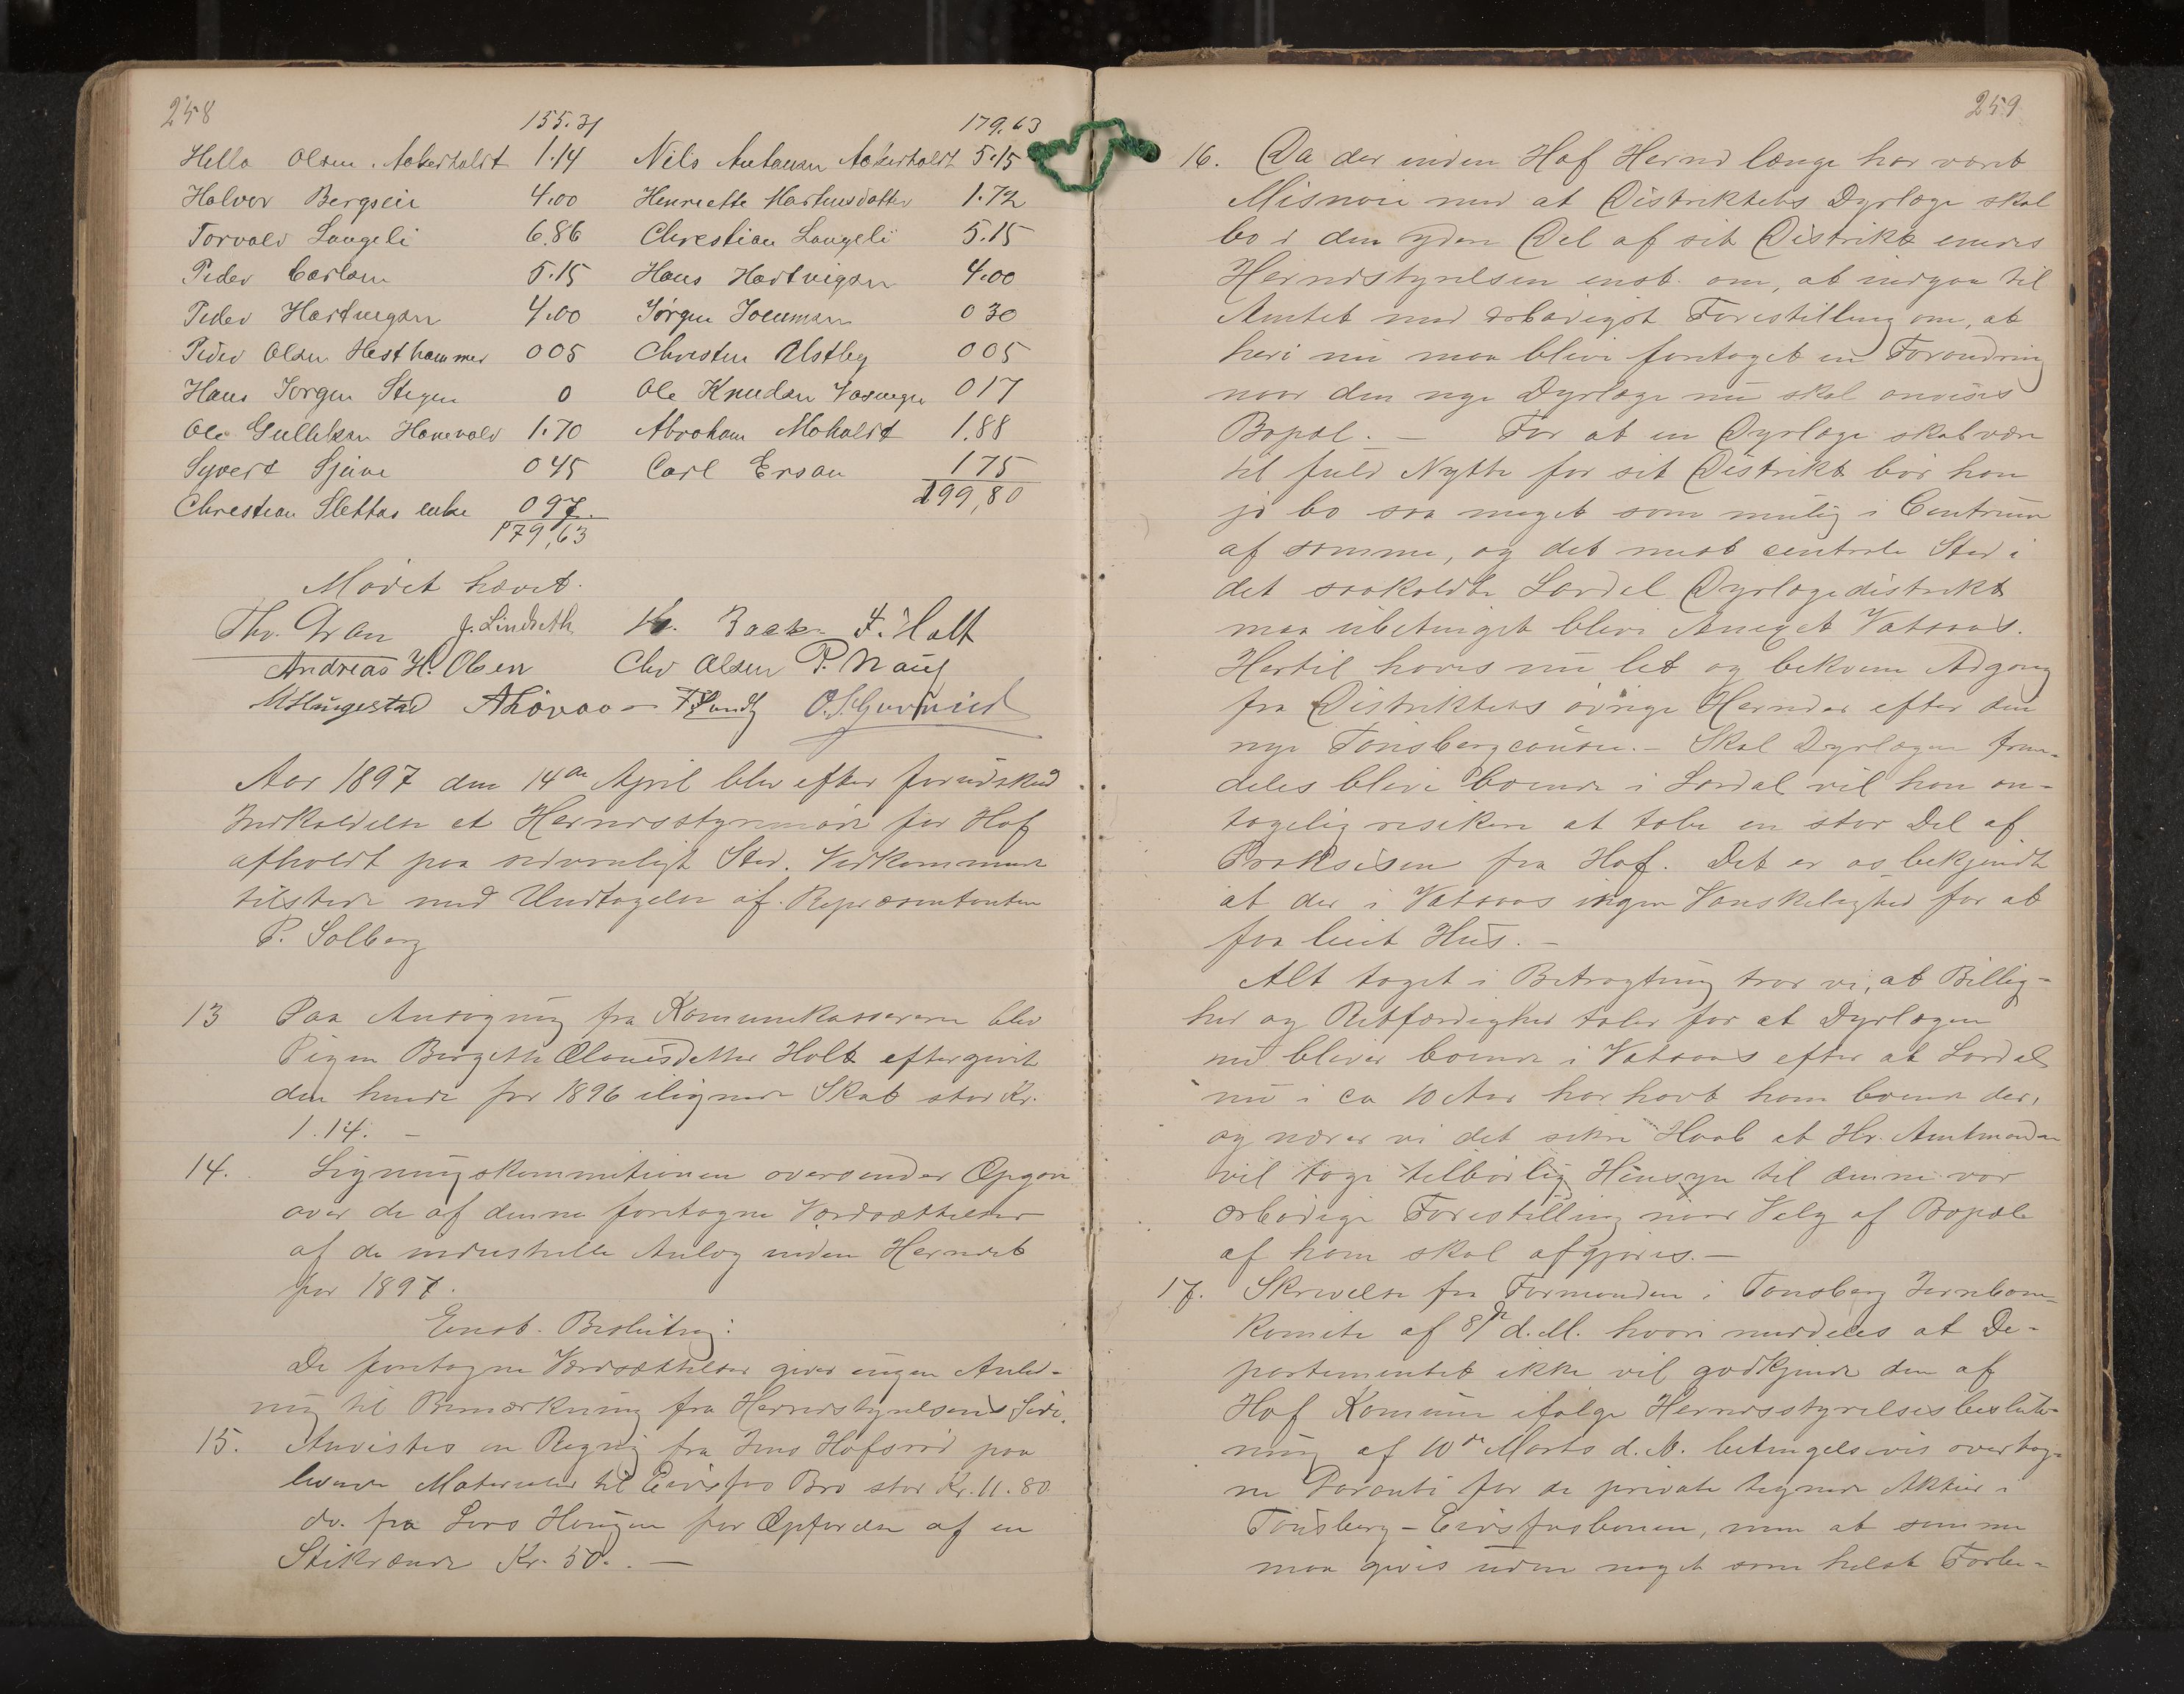 258
155.31
Hella Olsen Aakerholdt 1.14
Halvor Bergseie 4.00
Torvald Langeli 6.86
Peder Carlsen 5.15
Peder Hartvigsen 4.00
Peder Olsen Hesthammer 0 05
Hans Jørgen Stegen 0
Ole Gulliksen Hanevold 1.70
Syvert Sjuve 0 45
Christian Slettas enke 0 97.
179,63
179,63
Nils Antonsen Aakerholdt 5.15
Henriette Martinsdatter 1.72
Christian Langeli 5.15
Hans Hartvigsen 4.00
Jørgen 0 30
Christen Østby 0 05
Ole Knudsen 0 17
Abraham Moholdt 1.88
Carl Ersøn 1 75
199,80
Mødet hævet.
Thv. Gran J. Lindseth Kr. Backe F. Holt
Andreas H. Olsen Chr Olsen P. Nauf
Haugestad A Løvaas F. Sundby
Aar 1897 den 14de April blev efter forudskeed
Indkaldelse et Herredsstyremøde for Hof
afholdt paa sædvanligt Sted. Vedkommende
tilstede med Undtagelse af Repræsentanten
P. Solberg
13 Paa Ansøgning fra Kommunekassereren blev
Pigen Bergethe Olausdatter Holt eftergivet
den hende for 1896 ilignede Skat stor Kr.
1.14. –
14. Ligningskommitionen oversender Opgave
over de af denne foretagne Værdsættelser
af de industrielle Anlæg inden Herredet
for 1897.
Enst. Beslutning:
De foretagne Værdsættelser giver ingen Anled-
ning til Bemærkning fra Herredstyrelsens Side.
15. Anvistes en Regning fra Jens Hofsrød paa
leverede Materialer til Eidsfos Bro stor Kr. 11.80
do. fra Lars Haugen for Opførelse af en
Stikrænde Kr. 50. . –
259
16. Da der inden Hof Herred længe har været
Misnøie med at Distriktets Dyrlæge skal
bo i den ydre Del af sit Distrikt enedes
Herredstyrelsen enst. om, at indgaa til
Amtet med ærbødigst Forestilling om, at
heri nu maa blive foretaget en Forandring
naar den nye Dyrlæge nu skal anvises
Bopæl. – For at en Dyrlæge skal være
til fuld Nytte for sit Distrikt bør han
jo bo saa meget som mulig i Centrum
af samme, og det mest centrale Sted i
det saakaldte Lardal Dyrlægedistrikt
maa ubetinget blive Annexet Vatsaas.
Hertil haves nu let og bekvem Adgang
fra Distriktets øvrige Herreder efter den
nye Tønsbergcousse. – Skal Dyrlægen frem-
deles blive boende i Lardal vil han an-
tagelig risikere at tabe en stor Del af
Praksisen fra Hof. Det er os bekjendt
at der i Vatsaas ingen Vanskelighed for at
faa leiet Hus. –
Alt taget i Betragtning tror vi, at Billig-
hed og Retfærdighed taler for at Dyrlægen
nu bliver boende i Vatsaas efter at Lardal
nu i ca 10 Aar har havt ham boende der,
og nærer vi det sikre Haab at Hr. Amtmanden
vil tage tilbørlig Hensyn til denne vor
ærbødige Forestilling naar Valg af Bopæl
af ham skal afgjøres. –
17. Skrivelse fra Formanden i Tønsberg Jernbane-
komite af 8/4 d.M. hvori meddeles at De-
partementet ikke vil godkjende den af
Hof Komune ifølge Herredsstyrelsesbeslut-
ning af 10de Marts d. A. betingelsesvis overtag-
ne Garanti for de private tegnede Aktier i
Tønsberg – Eidsfosbanen, men at samme
maa gives uden noget som helst Forbe-